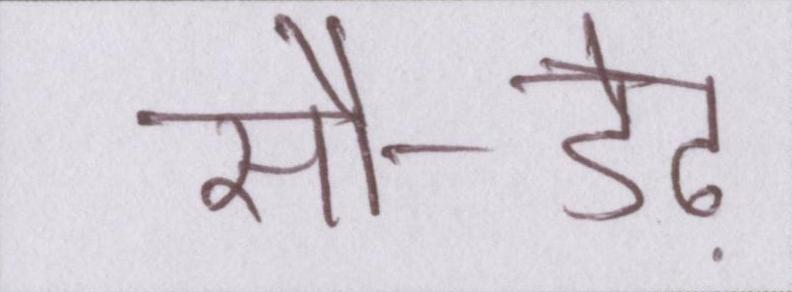 सौ-डेढ़